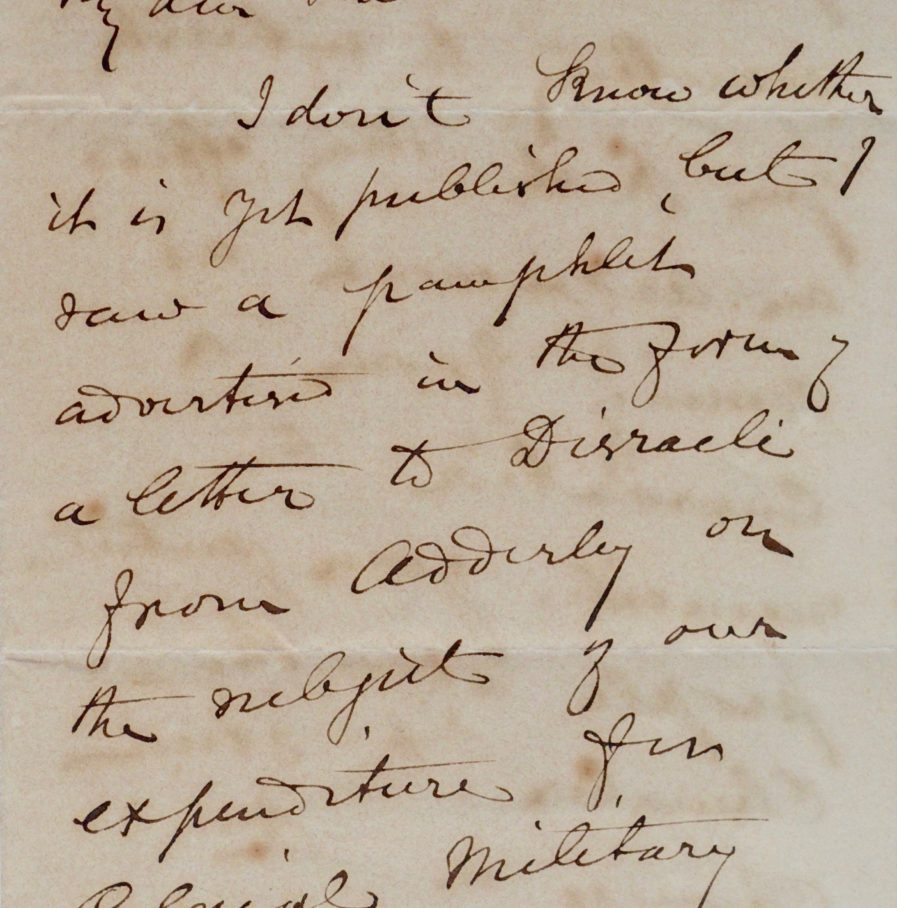 My dear
I don't know whether
it is yet published, but I
saw a pamphlet
advertised in the form of
a letter to Disraeli
from Adderley on
the subject of our
expenditure for
Colonial Military